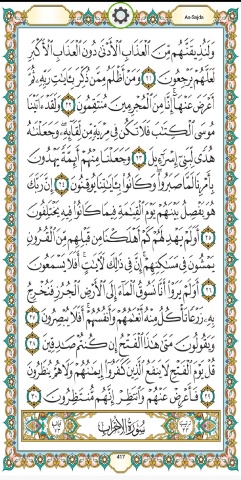 As-Sajda
وَلَنُذِيقَنَّهُم مِّنَ الْعَذَابِ الْأَدْنَىٰ دُونَ الْعَذَابِ الْأَكْبَرِ
لَعَلَّهُمْ يَرْجِعُونَ ٢١ وَمَنْ أَظْلَمُ مِمَّن ذُكِّرَ بِآيَاتِ رَبِّهِ ثُمَّ
أَعْرَضَ عَنْهَا إِنَّا مِنَ الْمُجْرِمِينَ مُنتَقِمُونَ ٢٢ وَلَقَدْ آتَيْنَا
مُوسَى الْكِتَابَ فَلَا تَكُن فِي مِرْيَةٍ مِّن لِّقَائِهِ وَجَعَلْنَاهُ
هُدًى لِّبَنِي إِسْرَائِيلَ ٢٣ وَجَعَلْنَا مِنْهُمْ أَئِمَّةً يَهْدُونَ
بِأَمْرِنَا لَمَّا صَبَرُوا وَكَانُوا بِآيَاتِنَا يُوقِنُونَ ٢٤ إِنَّ رَبَّكَ
هُوَ يَفْصِلُ بَيْنَهُمْ يَوْمَ الْقِيَامَةِ فِيمَا كَانُوا فِيهِ يَخْتَلِفُونَ
٢٥ أَوَلَمْ يَهْدِ لَهُمْ كَمْ أَهْلَكْنَا مِن قَبْلِهِم مِّنَ الْقُرُونِ
يَمْشُونَ فِي مَسَاكِنِهِمْ إِنَّ فِي ذَٰلِكَ لَآيَاتٍ أَفَلَا يَسْمَعُونَ
٢٦ أَوَلَمْ يَرَوْا أَنَّا نَسُوقُ الْمَاءَ إِلَى الْأَرْضِ الْجُرُزِ فَنُخْرِجُ
بِهِ زَرْعًا تَأْكُلُ مِنْهُ أَنْعَامُهُمْ وَأَنفُسُهُمْ أَفَلَا يُبْصِرُونَ ٢٧
وَيَقُولُونَ مَتَىٰ هَٰذَا الْفَتْحُ إِن كُنتُمْ صَادِقِينَ ٢٨
قُلْ يَوْمَ الْفَتْحِ لَا يَنفَعُ الَّذِينَ كَفَرُوا إِيمَانُهُمْ وَلَا هُمْ يُنظَرُونَ
٢٩ فَأَعْرِضْ عَنْهُمْ وَانتَظِرْ إِنَّهُم مُّنتَظِرُونَ ٣٠
سُورَةُ الْأَحْزَابِ
417